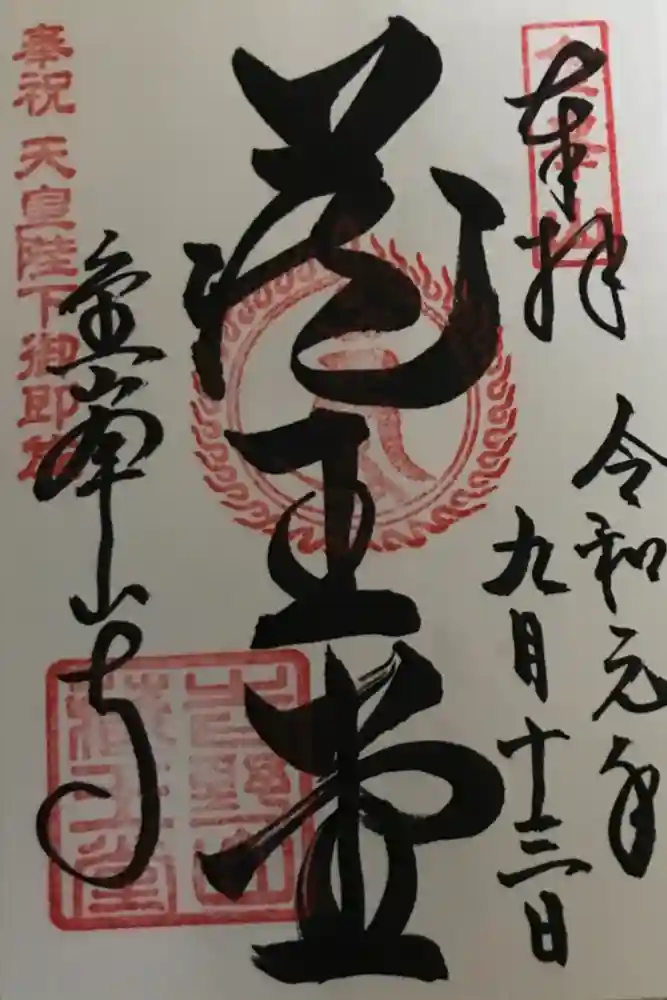 奉拝
令和元年
九月十三日
蔵王堂
金峯山寺
奉祝 天皇陛下御即位
吉野山
蔵王堂